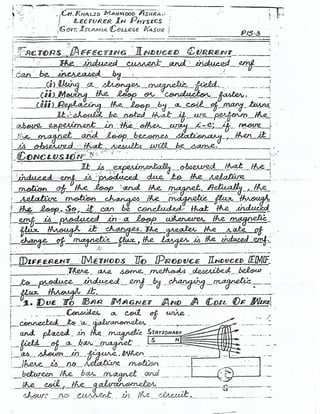 CH. KHALID MAHMOOD ASHRA
LECTURER IN PHYSICS
GOVT. ISLAMIA COLLEGE KASUR
P15-3
FACTORS AFFECTING INDUCED CURRENT
The induced current and induced emf
can be increased by
(i) Using a stronger magnetic field.
(ii) Moving the loop or conductor faster.
(iii) Replacing the loop by a coil of many turns
It should be noted that if we perform the
above experiment in the other way i-e; if move
the magnet and loop becomes stationary, then it
is observed that results will be same.
CONCLUSION
It is experimentally observed that the
induced emf is produced due to the relative
motion of the loop and the magnet. Actually, the
relative motion changes the magnetic flux through
the loop. So, it can be concluded that the induced
emf is produced in a loop whenever the magnetic
flux through it changes. The greater the rate of
change of magnetic flux, the larger is the induced emf.
DIFFERENT METHODS TO PRODUCE INDUCED EMF
There are some methods described below
to produce induced emf by changing magnetic
flux through it.
1. DUE TO BAR MAGNET AND A COIL OF WIRE
Consider a coil of wire
connected to a galvanometer
and placed in the magnetic
STATIONARY
field of a bar magnet
S N
as shown in figure. When
there is no relative motion
between the bar magnet and
the coil, the galvanometer
G
shows no current in the circuit.